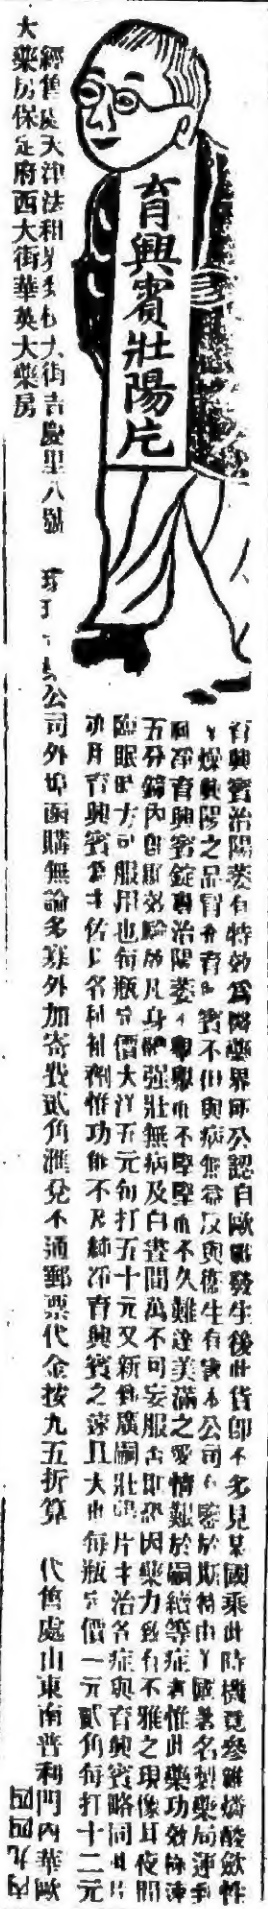 育興賓壯陽片
育興賓治陽萎有特效為醫藥界所公認自歐戰發生後此貨卽不多見某國乘此時機竟參雜燐酸歛性
燥興陽之品冒充育興賓不但與病無益反與衛生有害本公司有鑒於斯特由國著名製藥局運到
淨育興賓錠專治陽萎不舉舉而不堅堅而不久難達美滿之愛情艱於嗣續等症者惟此藥功效極速
五分鐘內卽效驗然凡身體强壯無病及白晝間萬不可妄服否則恐因藥力致有不雅之現像耳夜間
臨眠時方可服用也每瓶定價大洋五元每打五十元又新到廣嗣壯陽片治各症與育興賓略同此片
功用育興賓為佐以名補劑惟功能不及純淨育興賓之速且大也每瓶定價一元貳角每打十二元
經售處天津法租界大街吉慶里八號 公司外埠函購無論多寡外加寄費貳角滙兌不通郵票代金按九五折算 代售處山東南普利門內華歐
大藥房保定府西大街華英大藥房
內九四四